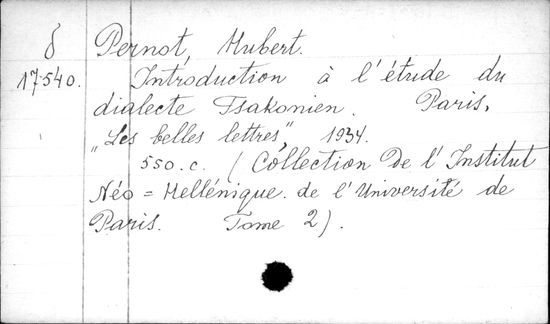 δ Pernot, Hubert.
17.540. Introduction à l'étude du
dialecte Tsakonien. Paris,
„Les belles lettres", 1934.
550.c. (Collection de l'Institut
Néo=Hellénique de l'Université de
Paris. Tome 2).